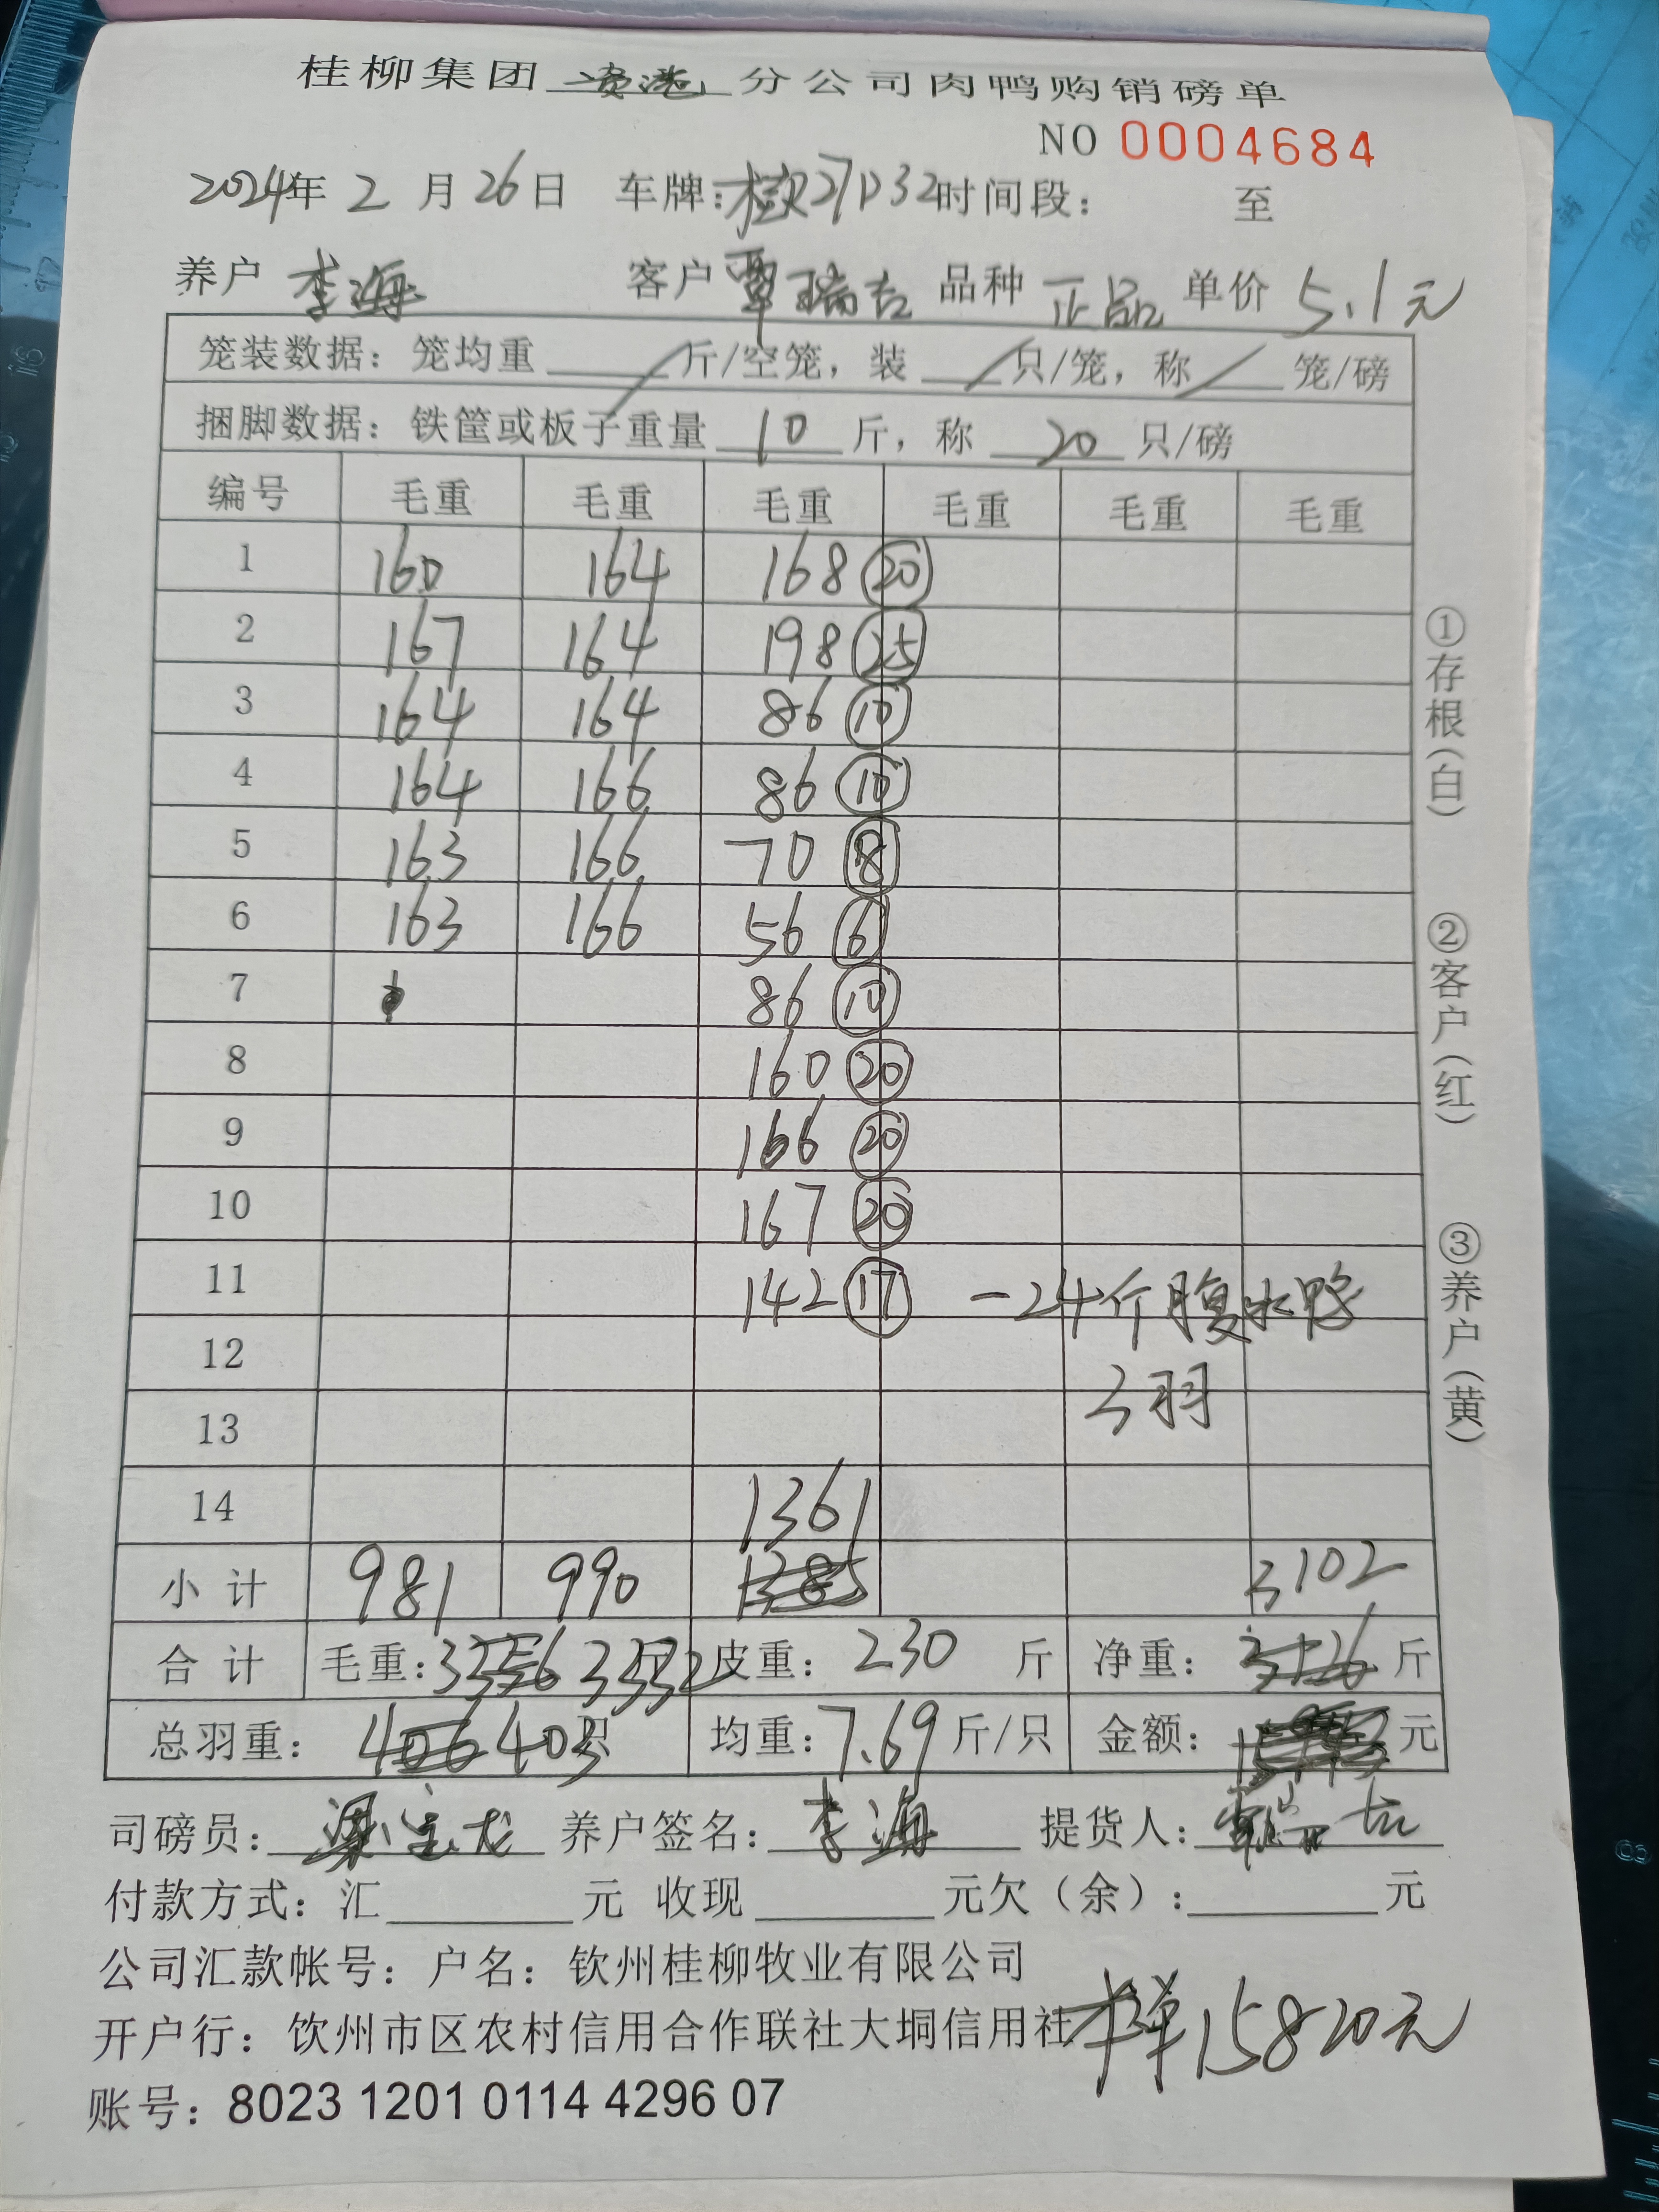 桂柳集团 贵港 分公司肉鸭购销磅单
NO 0004684
2024年 2 月 26日 车牌:桂R27D32 时间段: 至
养户 李海 客户 覃瑞吉 品种 正品 单价 5.1元
笼装数据: 笼均重 斤/空笼, 装 只/笼, 称 笼/磅
捆脚数据: 铁筐或板子重量 10 斤, 称 20 只/磅
编号 毛重 毛重 毛重 毛重 毛重 毛重
1 160 164 168 20
2 167 164 198 25
3 164 164 86 10
4 164 166 86 10
5 163 166 70 8
6 163 166 56 6
7 86 10
8 160 20
9 166 20
10 167 20
11 142 17 -24斤腹水鸭
12 3羽
13
14 1361
小计 981 990 1385 3102
合计 毛重: 3356 3332 皮重: 230 斤 净重: 3126 斤
总羽重: 406 403 只 均重: 7.69 斤/只 金额: 元
司磅员: 梁宝龙 养户签名: 李海 提货人:
付款方式: 汇 元 收现 元欠(余): 元
公司汇款帐号: 户名: 钦州桂柳牧业有限公司
开户行: 饮州市区农村信用合作联社大垌信用社
本单15820元
账号: 8023 1201 0114 4296 07
①存根(白)
②客户(红)
③养户(黄)